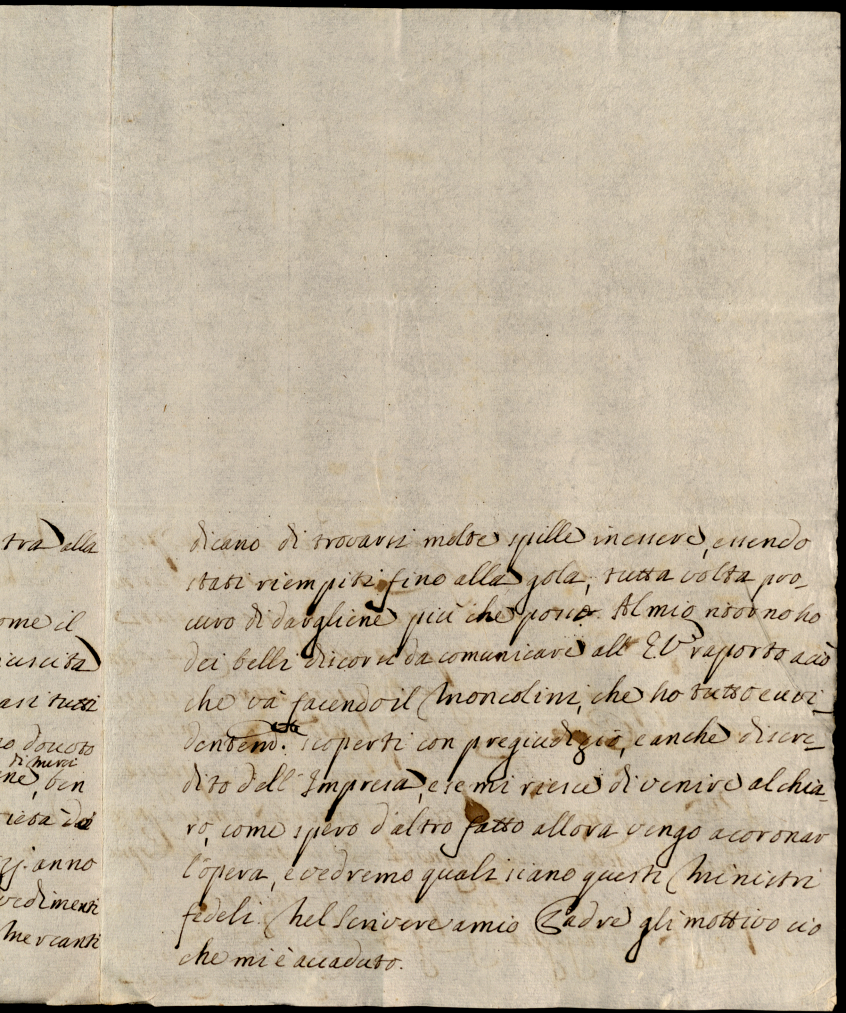 tra alla
ome il
iuscita
asi tutti
no douoto
di merci
ne, ben
rietà dei
zzj. anno
vedimenti
Mercanti
dicano di trovarsi molte spille in essere, essendo
stati riempiti fino alla gola, tutta volta pro-
curo di dargliene più che posso. Al mio ritorno ho
dei belli discorsi da comunicare all' EV raporto a ciò
che và facendo il Moncolini, che ho tutto euvi-
dentem.te scoperti con pregiudizio, e anche discre-
dito dell' Impresa, e se mi riesce di venire al chia-
ro, come spero d'altro fatto allora vengo a coronar
l'opera, e vedremo quali siano questi Ministri
fedeli. Nel Scrivere a mio Padre gli mottivo ciò
che mi è accaduto.